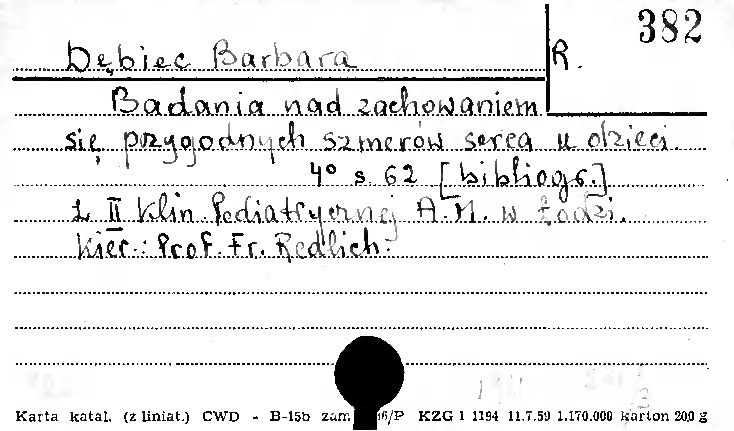 382
Dębiec Barbara
R.
Badania nad zachowaniem
się przygodnych szmerów serca u dzieci.
4° s. 62 [bibliogr.]
Z II Klin. Pediatrycznej A.M. w Łodzi.
Kier.: Prof. Fr. Redlich.
Karta katal. (z liniat.) CWD - B-15b zam. 46/P KZG 1 1194 11.7.59 1.170.000 karton 200 g